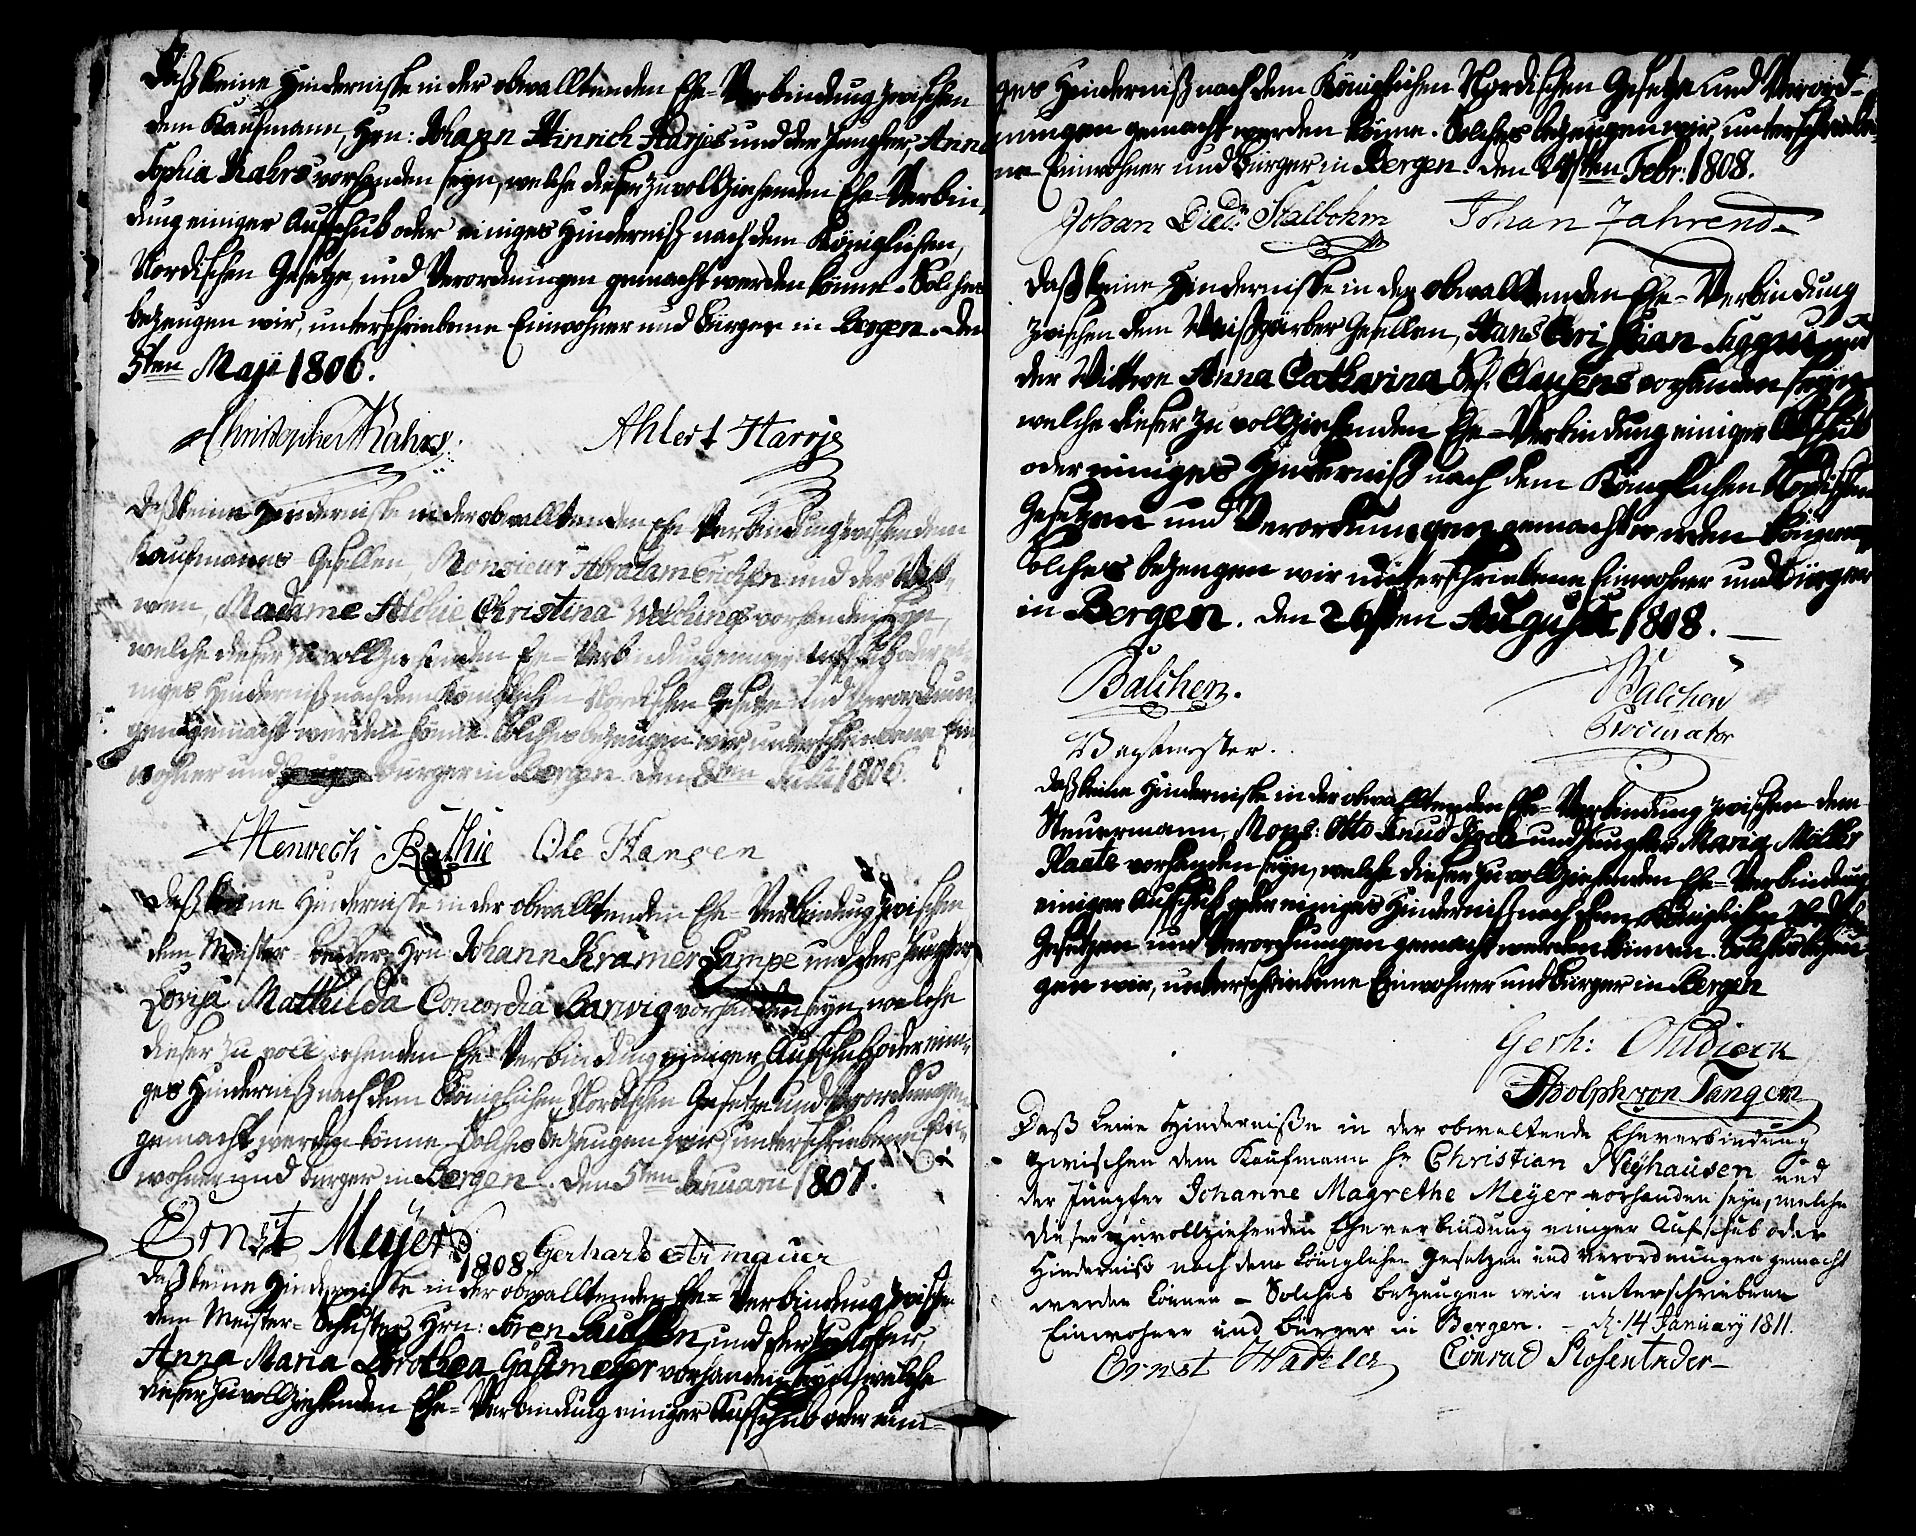 Daß keine Hinderniße in der obwalltenden Ehe-Verbindung zwischen
dem Kaufmann, Hrn: Johann Hinrich Harjes und der Jungfer, Anna
Sophia Rahrs vorhanden seyn, welche dieser zu vollziehenden Ehe-Verbin-
dung einiger Aufschub oder einiges Hinderniß nach dem Königlichen,
Nordischen Gesetze, und Verordnungen gemacht werden könne. Solches
bezeugen wir, unterschriebene Einwohner und Bürger in Bergen. Den
5ten Maji 1806.
Christopher Rahrs. Ahlert Harrjes
Daß keine Hinderniße in der obwalltenden Ehe-Verbindung zwischen dem
Kaufmanns Gesellen, Monsieur Abraham Erichsen und der Witt-
wen, Madame Christina vorhanden seyn,
welche dieser zu vollziehenden Ehe-Verbindung einiger Aufschub oder ei-
niges Hinderniß nach dem Königlichen Nordischen Gesetze und Verordnun-
gen gemacht werden könne. Solches bezeugen wir, unterschriebene Ein-
wohner und Bürger in Bergen. Den 8ten 1806.
Henrech Ole Hansen
Daß keine Hinderniße in der obwalltenden Ehe-Verbindung zwischen
dem Meister- Hrn: Johann Kramer Lampe und der Jungfer
Lovisa Mathilda Concordia Barwig vorhanden seyn, welche
dieser zu vollziehenden Ehe-Verbindung einiger Aufschub oder eini-
ges Hinderniß nach dem Königlichen Nordischen Gesetze und Verordnungen
gemacht werden könne. Solches bezeugen wir, unterschriebene Ein-
wohner und Bürger in Bergen. Den 5ten Januarii 1807.
Ernst Meyer Gerhard
1808.
Daß keine Hinderniße in der obwalltenden Ehe-Verbindung zwischen
dem Meister-Schuster, Hrn: Sören und der Jungfer,
Anna Maria Dorothea Gustmeyer vorhanden seyn, welche
dieser zu vollziehenden Ehe-Verbindung einiger Aufschub oder eini-
ges Hinderniß nach dem Königlichen Nordischen Gesetze und Verord-
nungen gemacht werden könne. Solches bezeugen wir, unterschriebe-
ne Einwohner und Bürger in Bergen. Den Febr: 1808.
Johan Died: Stalbohm Johan Fahrend
Daß keine Hinderniße in der obwalltenden Ehe-Verbindung
zwischen dem Gesellen, Hans Christian und
der Wittwe Anna Catharina Clausens vorhanden seyn,
welche dieser zu vollziehenden Ehe-Verbindung einiger Aufschub
oder einiges Hinderniß nach dem Königlichen Nordischen
Gesetzen und Verordnungen gemacht werden können,
Solches bezeugen wir unterschriebene Einwohner und Bürger
in Bergen. Den 26sten Augusti 1808.
Balchen. Balchen
Procurator
Daß keine Hinderniße in der obwalltenden Ehe-Verbindung zwischen dem
Steuermann, Mons: Otto Knud und Jungfer Maria Möller
vorhanden seyn, welche dieser zu vollziehenden Ehe-Verbindung
einiger Aufschub oder einiges Hinderniß nach dem Königlichen Nordischen
Gesetzen und Verordnungen gemacht werden können. Solches bezeu-
gen wir, unterschriebene Einwohner und Bürger in Bergen
Gerh: Ohldieck
Adolph von Tangen
Daß keine Hinderniße in der obwaltende Eheverbindung
zwischen dem Kaufmann Hr Christian Neyhausen und
der Jungfer Johanne Magrethe Meyer vorhanden seyn, welche
dieser zuvollziehenden Eheverbindung einiger Aufschub oder
Hinderniß nach dem königlichen Gesetzen und Verordnungen gemacht
werden können – Solches bezeugen wir unterschriebene
Einwohner und Bürger in Bergen. – d. 14 January 1811.
Ernst Conrad